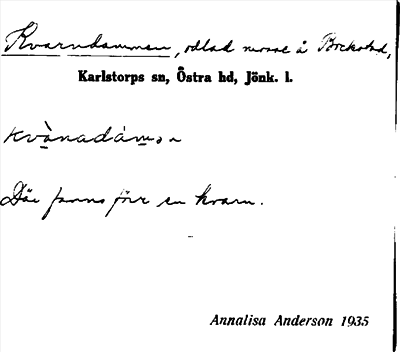 Kvarndammen, odlad mosse å Bockstad,
Karlstorps sn, Östra hd, Jönk. l.
kvànadámən
Där fanns förr en kvarn.
Annalisa Anderson 1935